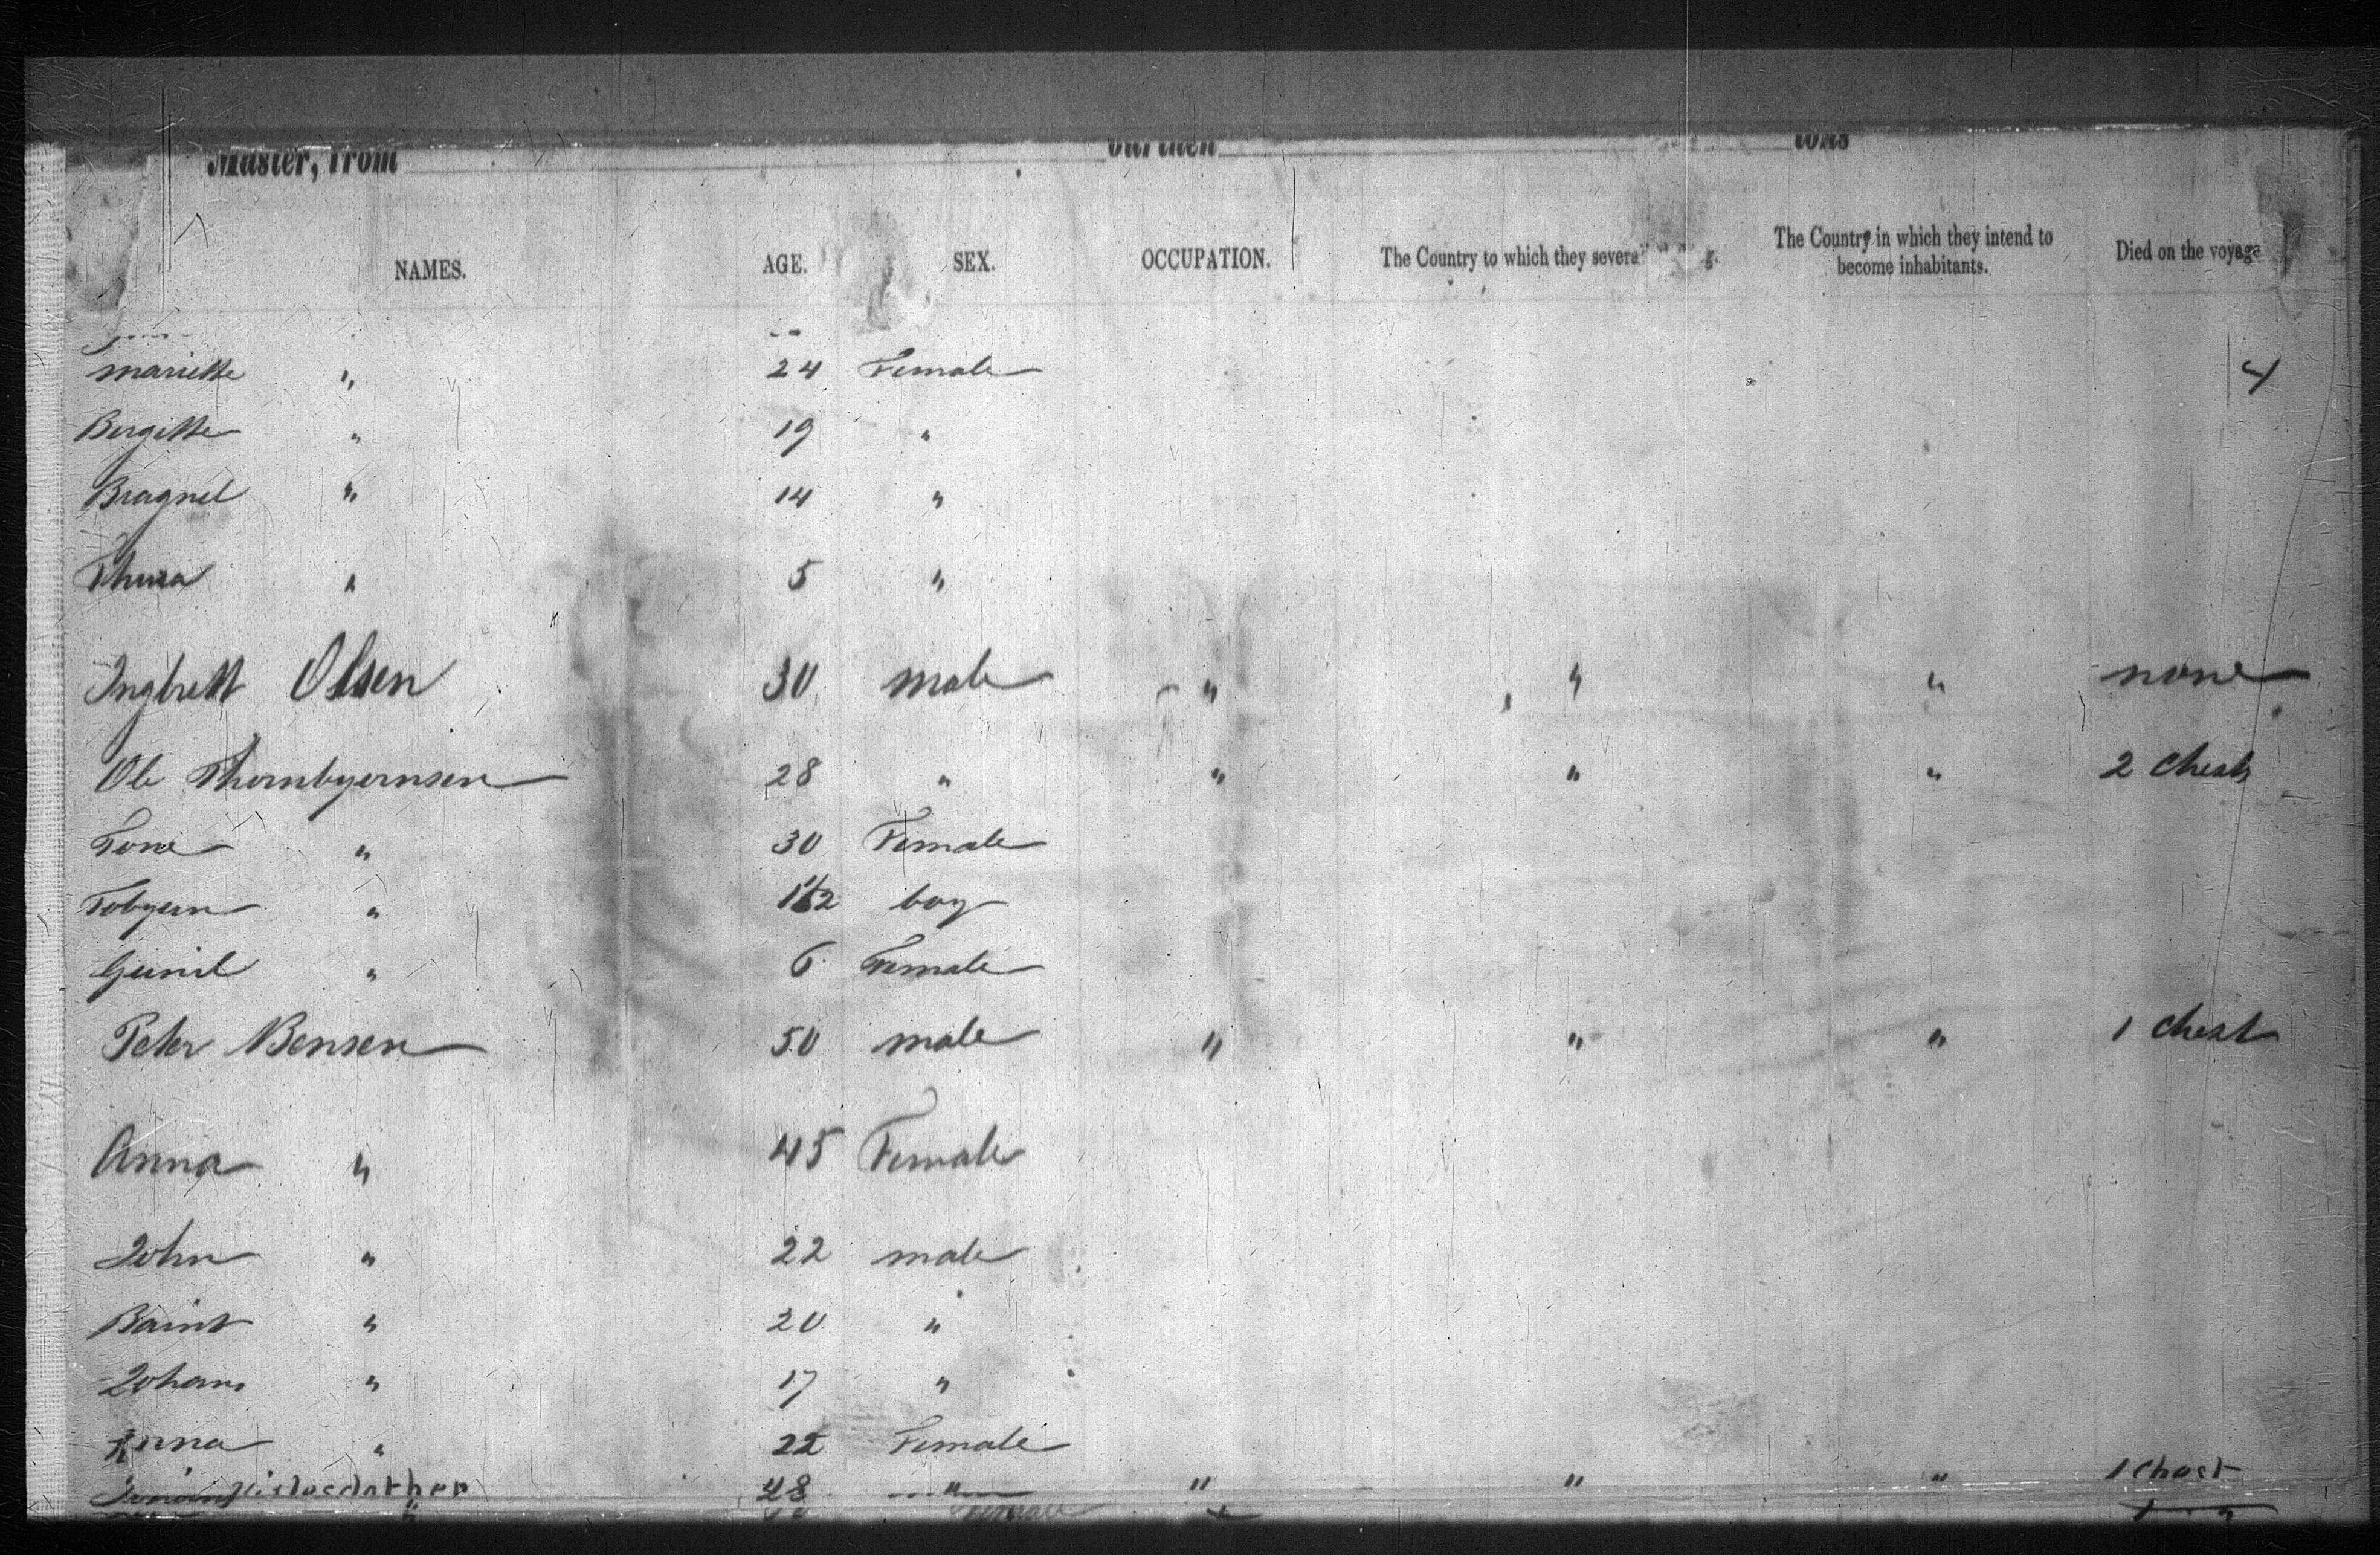 Master, from burthen tons
NAMES. AGE. SEX. OCCUPATION. The Country to which they several The Country in which they intend to become inhabitants. Died on the voyage
4
Mariette " 24 Female
Bergitte " 19 "
Bragnel " 14 "
Thura " 5 "
Ingbrett Olsen 30 male " " " none
Ole Thornbyernsen 28 " " " " 2 Chests
Tone " 30 Female
Tobyern " 1 1/2 boy
Gunil " 6 Female
Peter Bensen 50 male " " " 1 Chest
Anna " 45 Female
John " 22 male
Baint " 20 "
Johans " 17 "
Anna " 22 Female
48 " " " " 1 Chest
Female